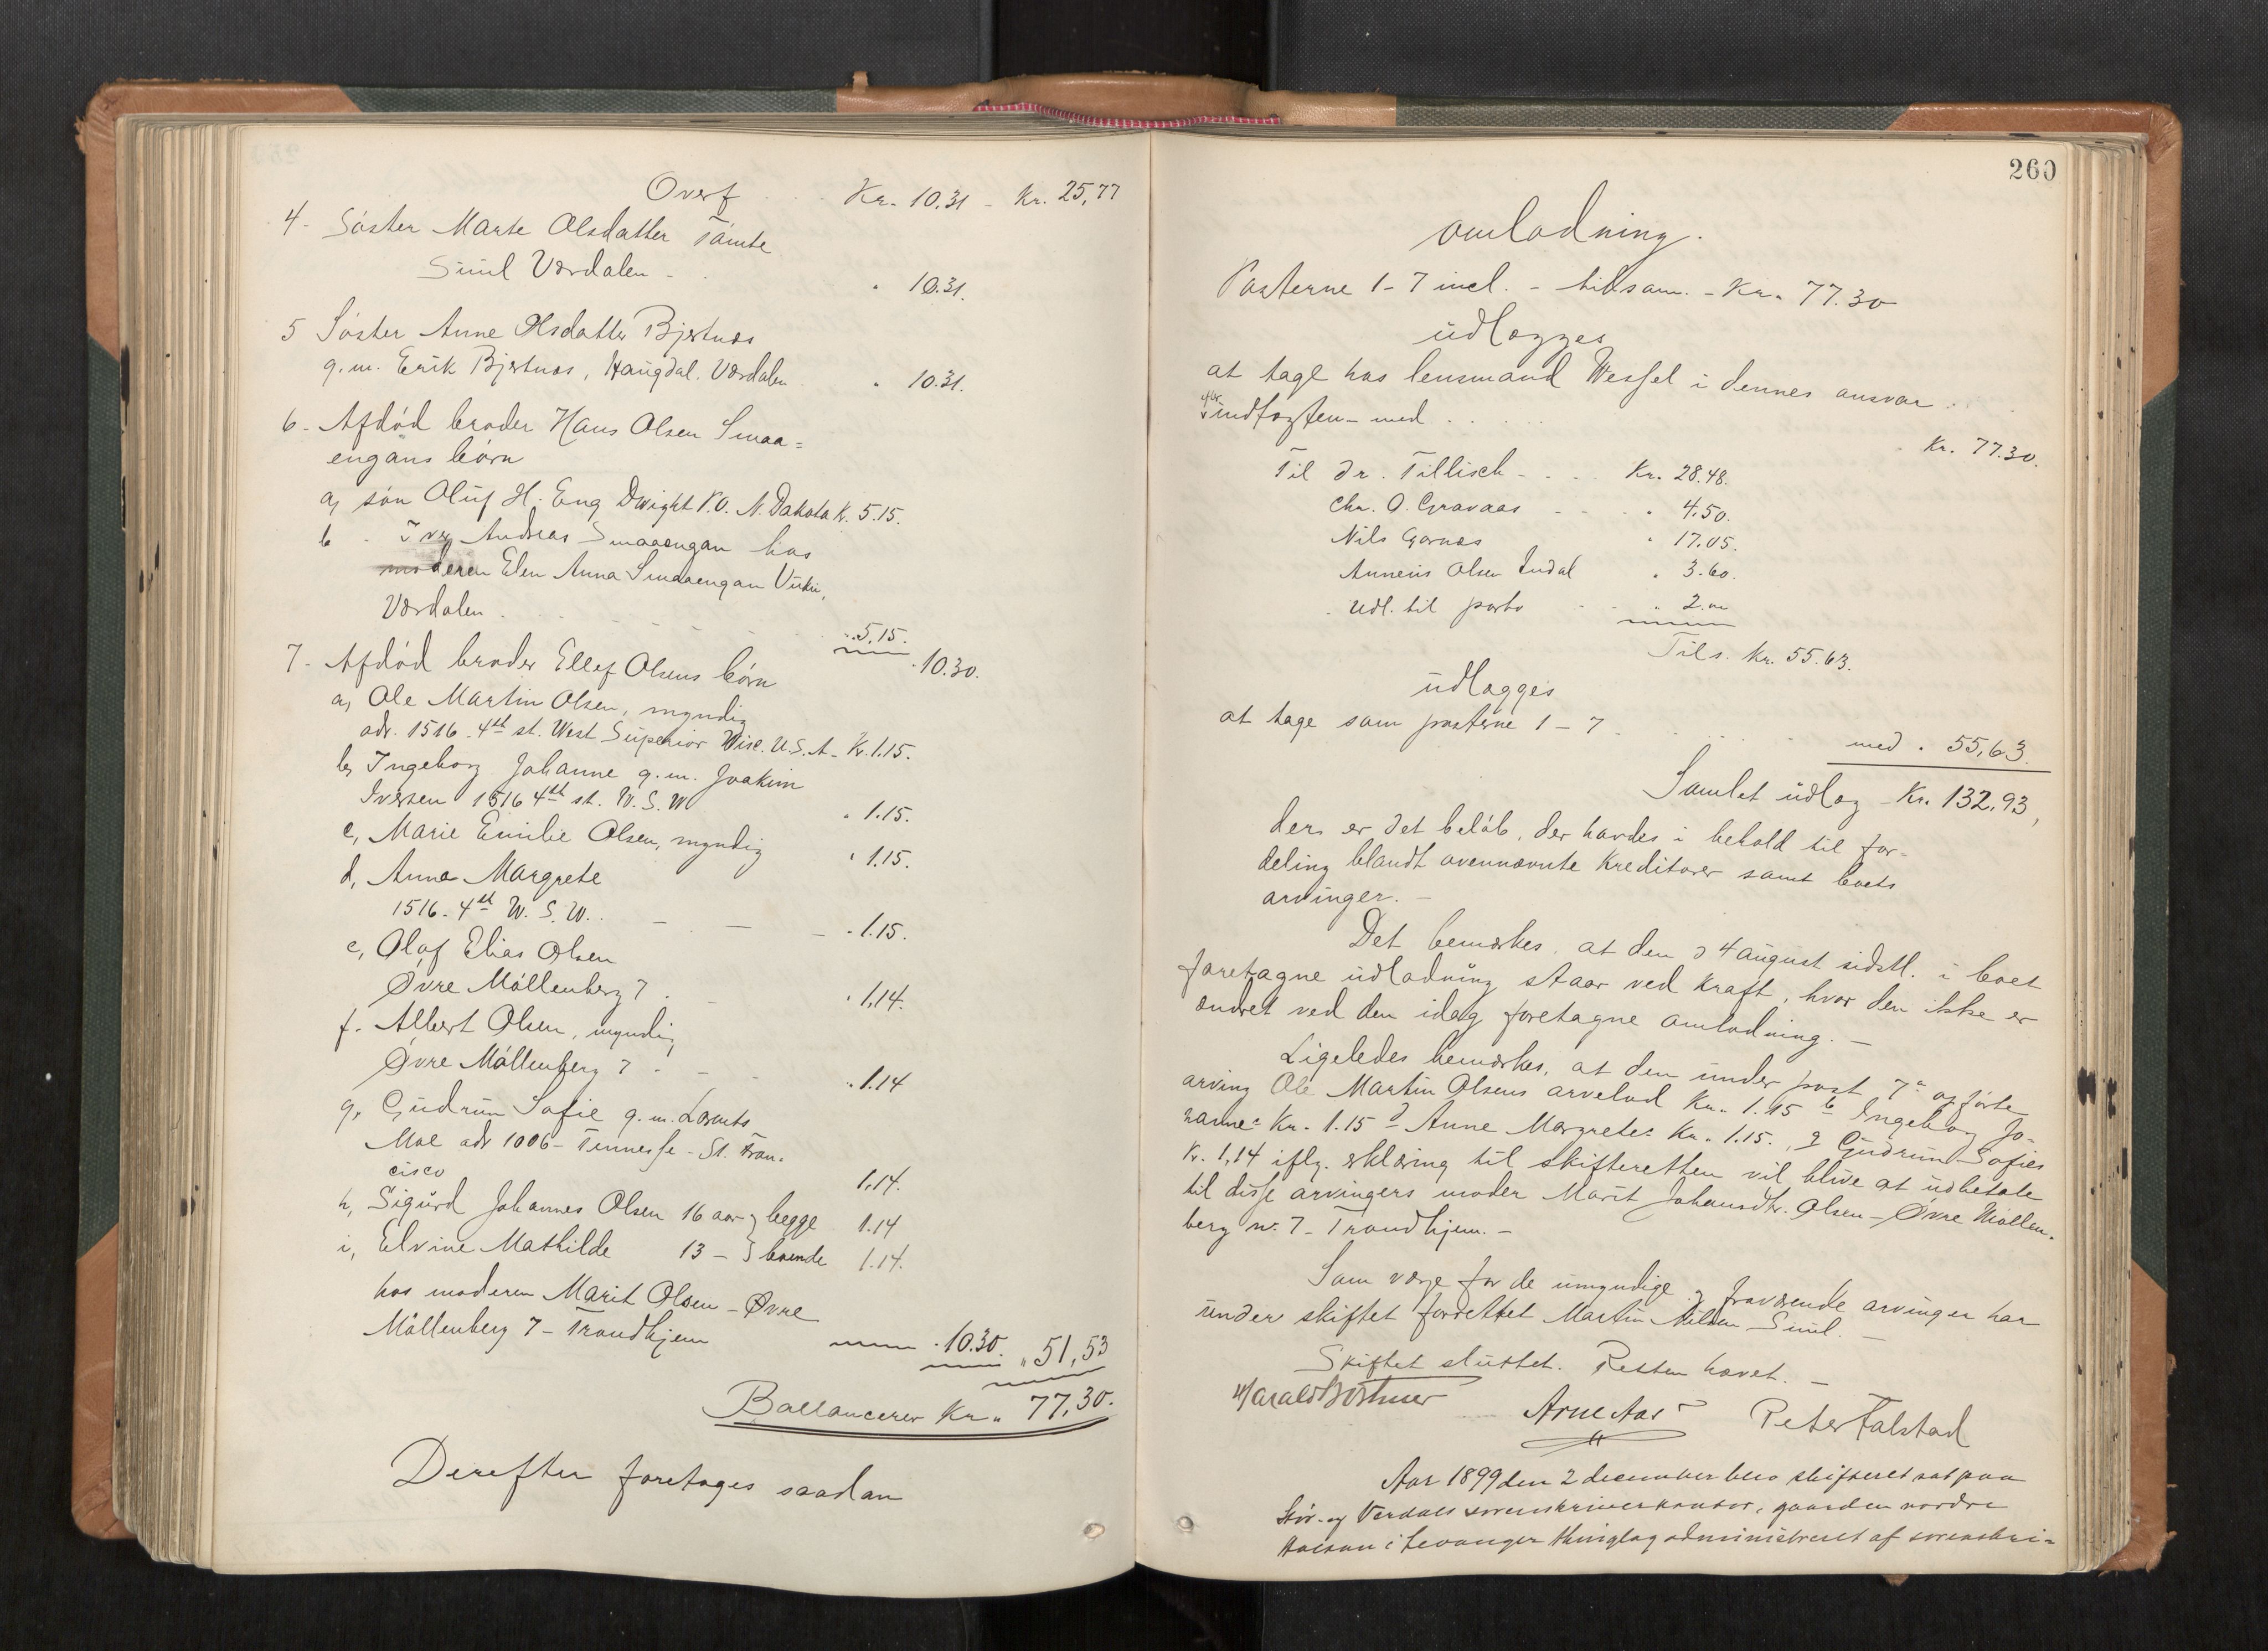 Overf Kr. 10.31 - Kr. 25,77
4. Søster Marte Olsdatter Tømte
Suul Værdalen - " 10.31.
5 Søster Anne Olsdatter Bjertnæs
g.m. Erik Bjertnæs, Haugdal. Værdalen " 10.31.
6. Afdød broder Hans Olsen Smaa=
engans børn
a, søn Oluf H. Eng Dwight P.O. N. Dakota Kr. 5.15.
b - Andreas Smaaengan hos
moderen Elen Anna Smaaengan Vuku,
Værdalen - - - - " 5.15.
" 10.30.
7- Afdød broder Ellef Olsens børn
a, Ole Martin Olsen, myndig
adr. 1516. 4th st. West Superior Wisc. U.S.A - Kr. 1.15.
b, Ingeborg Johanne g.m. Joakim
Iversen 1516 4th st. W. S. W " 1.15.
c, Marie Emilie Olsen, myndig " 1.15.
d, Anna Margrete
1516. 4th W. S. W. - - - " 1.15.
e, Olaf Elias Olsen
Øvre Møllenberg 7 . - " 1,14.
f. Albert Olsen, myndig
Øvre Møllenberg 7 - - - " 1.14
g, Gudrun Sofie g.m. Lorents
Moe adr 1006 - Tennesse - St. Fran=
cisco 1,14.
h, Sigurd Johannes Olsen 16 aar } begge 1.14
i, Elvine Mathilde 13 - } boende 1.14.
hos moderen Marit Olsen - Øvre
Møllenberg 7 - Trondhjem " 10.30. " 51,53
Ballancerer Kr. 77,30.
Derefter foretages saadan
260
omlodning.
Posterne 1-7 incl. - tilsam. - Kr. 77.30
udlægges
at tage hos lensmand Wessel i dennes ansvar
for indtægten - med . . . . . Kr. 77.30.
Til dr. Tillisch - . . . Kr. 28.48.
Chr. O. Gravaas - - " 4.50.
Nils Garnæs " 17.05.
Anneus Olsen Indal " 3.60.
- Udl. til porto - - " 2.00
Tils. Kr. 55.63.
udlægges
at tage som posterne 1-7 . . . . . med " 55,63.
Samlet udlæg - Kr. 132,93,
ders er det beløb, der havdes i behold til for-
deling blandt ovennævnte kreditorer samt boets
arvinger. -
Det bemærkes, at den 24 august sidstl. i boet
foretagne udlodning staar ved kraft, hvor den ikke er
ændret ved den idag foretagne omlodning. -
Ligeledes bemærkes, at den under post 7 a opførte
arving Ole Martin Olsens arvelod Kr. 1.15 b Ingeborg Jo-
hannes Kr. 1.15 d Anne Margretes Kr. 1.15., g Gudrun Sofies
Kr. 1,14 iflg. erklæring til skifteretten vil blive at udbetale
til disse arvingers moder Marit Johansdtr. Olsen - Øvre Møllen-
berg nr. 7 - Trondhjem. -
Som værge for de umyndige og fraværende arvinger har
under skiftet forrettet Martin Nilsen Suul. -
Skiftet sluttet. Retten hævet. -
Harald Bothner Arne Aas Peter Falstad
Aar 1899 den 2 december blev skifteret sat paa
Stør- og Verdals sorenskriverkontor, gaarden nordre
i Levanger thinglag administreret af sorenskri=